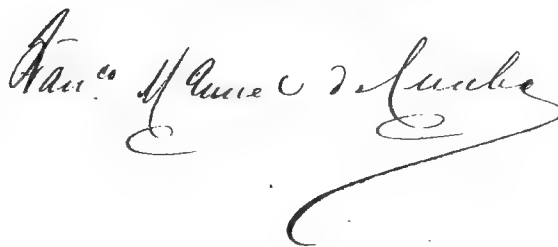 Fran.co Manuel da Cunha